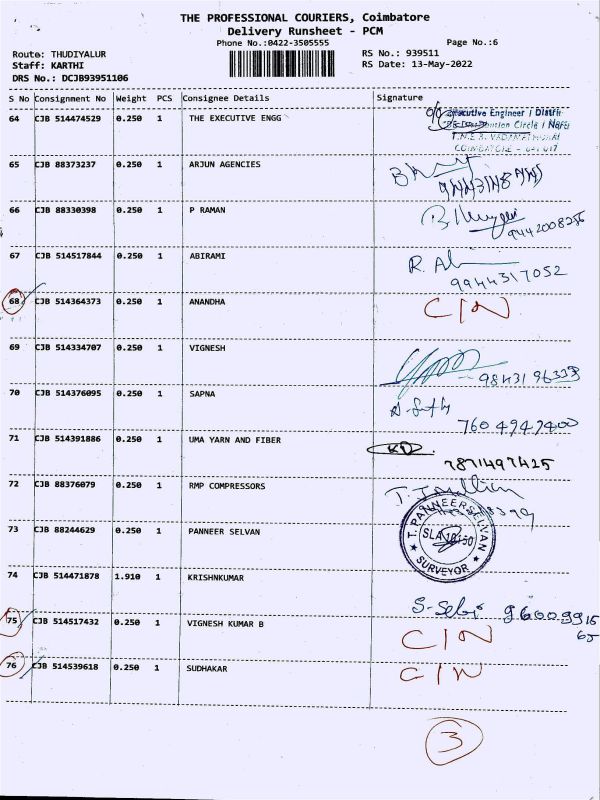 THE PROFESSIONAL COURIERS, Coimbatore
Delivery Runsheet - PCM
Phone No.:0422-3505555
Page No.:6
Route: THUDIYALUR
RS No.: 939511
Staff: KARTHI
RS Date: 13-May-2022
DRS No.: DCJB93951106
S No Consignment No Weight PCS Consignee Details Signature
64 CJB 514474529 0.250 1 THE EXECUTIVE ENGG
Executive Engineer / Distri
Circle / North
COIMBATORE - 641 017
65 CJB 88373237 0.250 1 ARJUN AGENCIES
66 CJB 88330398 0.250 1 P RAMAN
9442008256
67 CJB 514517844 0.250 1 ABIRAMI
R.
9944317052
68 CJB 514364373 0.250 1 ANANDHA C/N
69 CJB 514334707 0.250 1 VIGNESH
98431 96339
70 CJB 514376095 0.250 1 SAPNA
760 4947400
71 CJB 514391886 0.250 1 UMA YARN AND FIBER
7871497425
72 CJB 88376079 0.250 1 RMP COMPRESSORS
73 CJB 88244629 0.250 1 PANNEER SELVAN
T. PANNEERSELVAN
SURVEYOR
74 CJB 514471878 1.910 1 KRISHNKUMAR
96009916
65
75 CJB 514517432 0.250 1 VIGNESH KUMAR B C/N
76 CJB 514539618 0.250 1 SUDHAKAR C/N
3